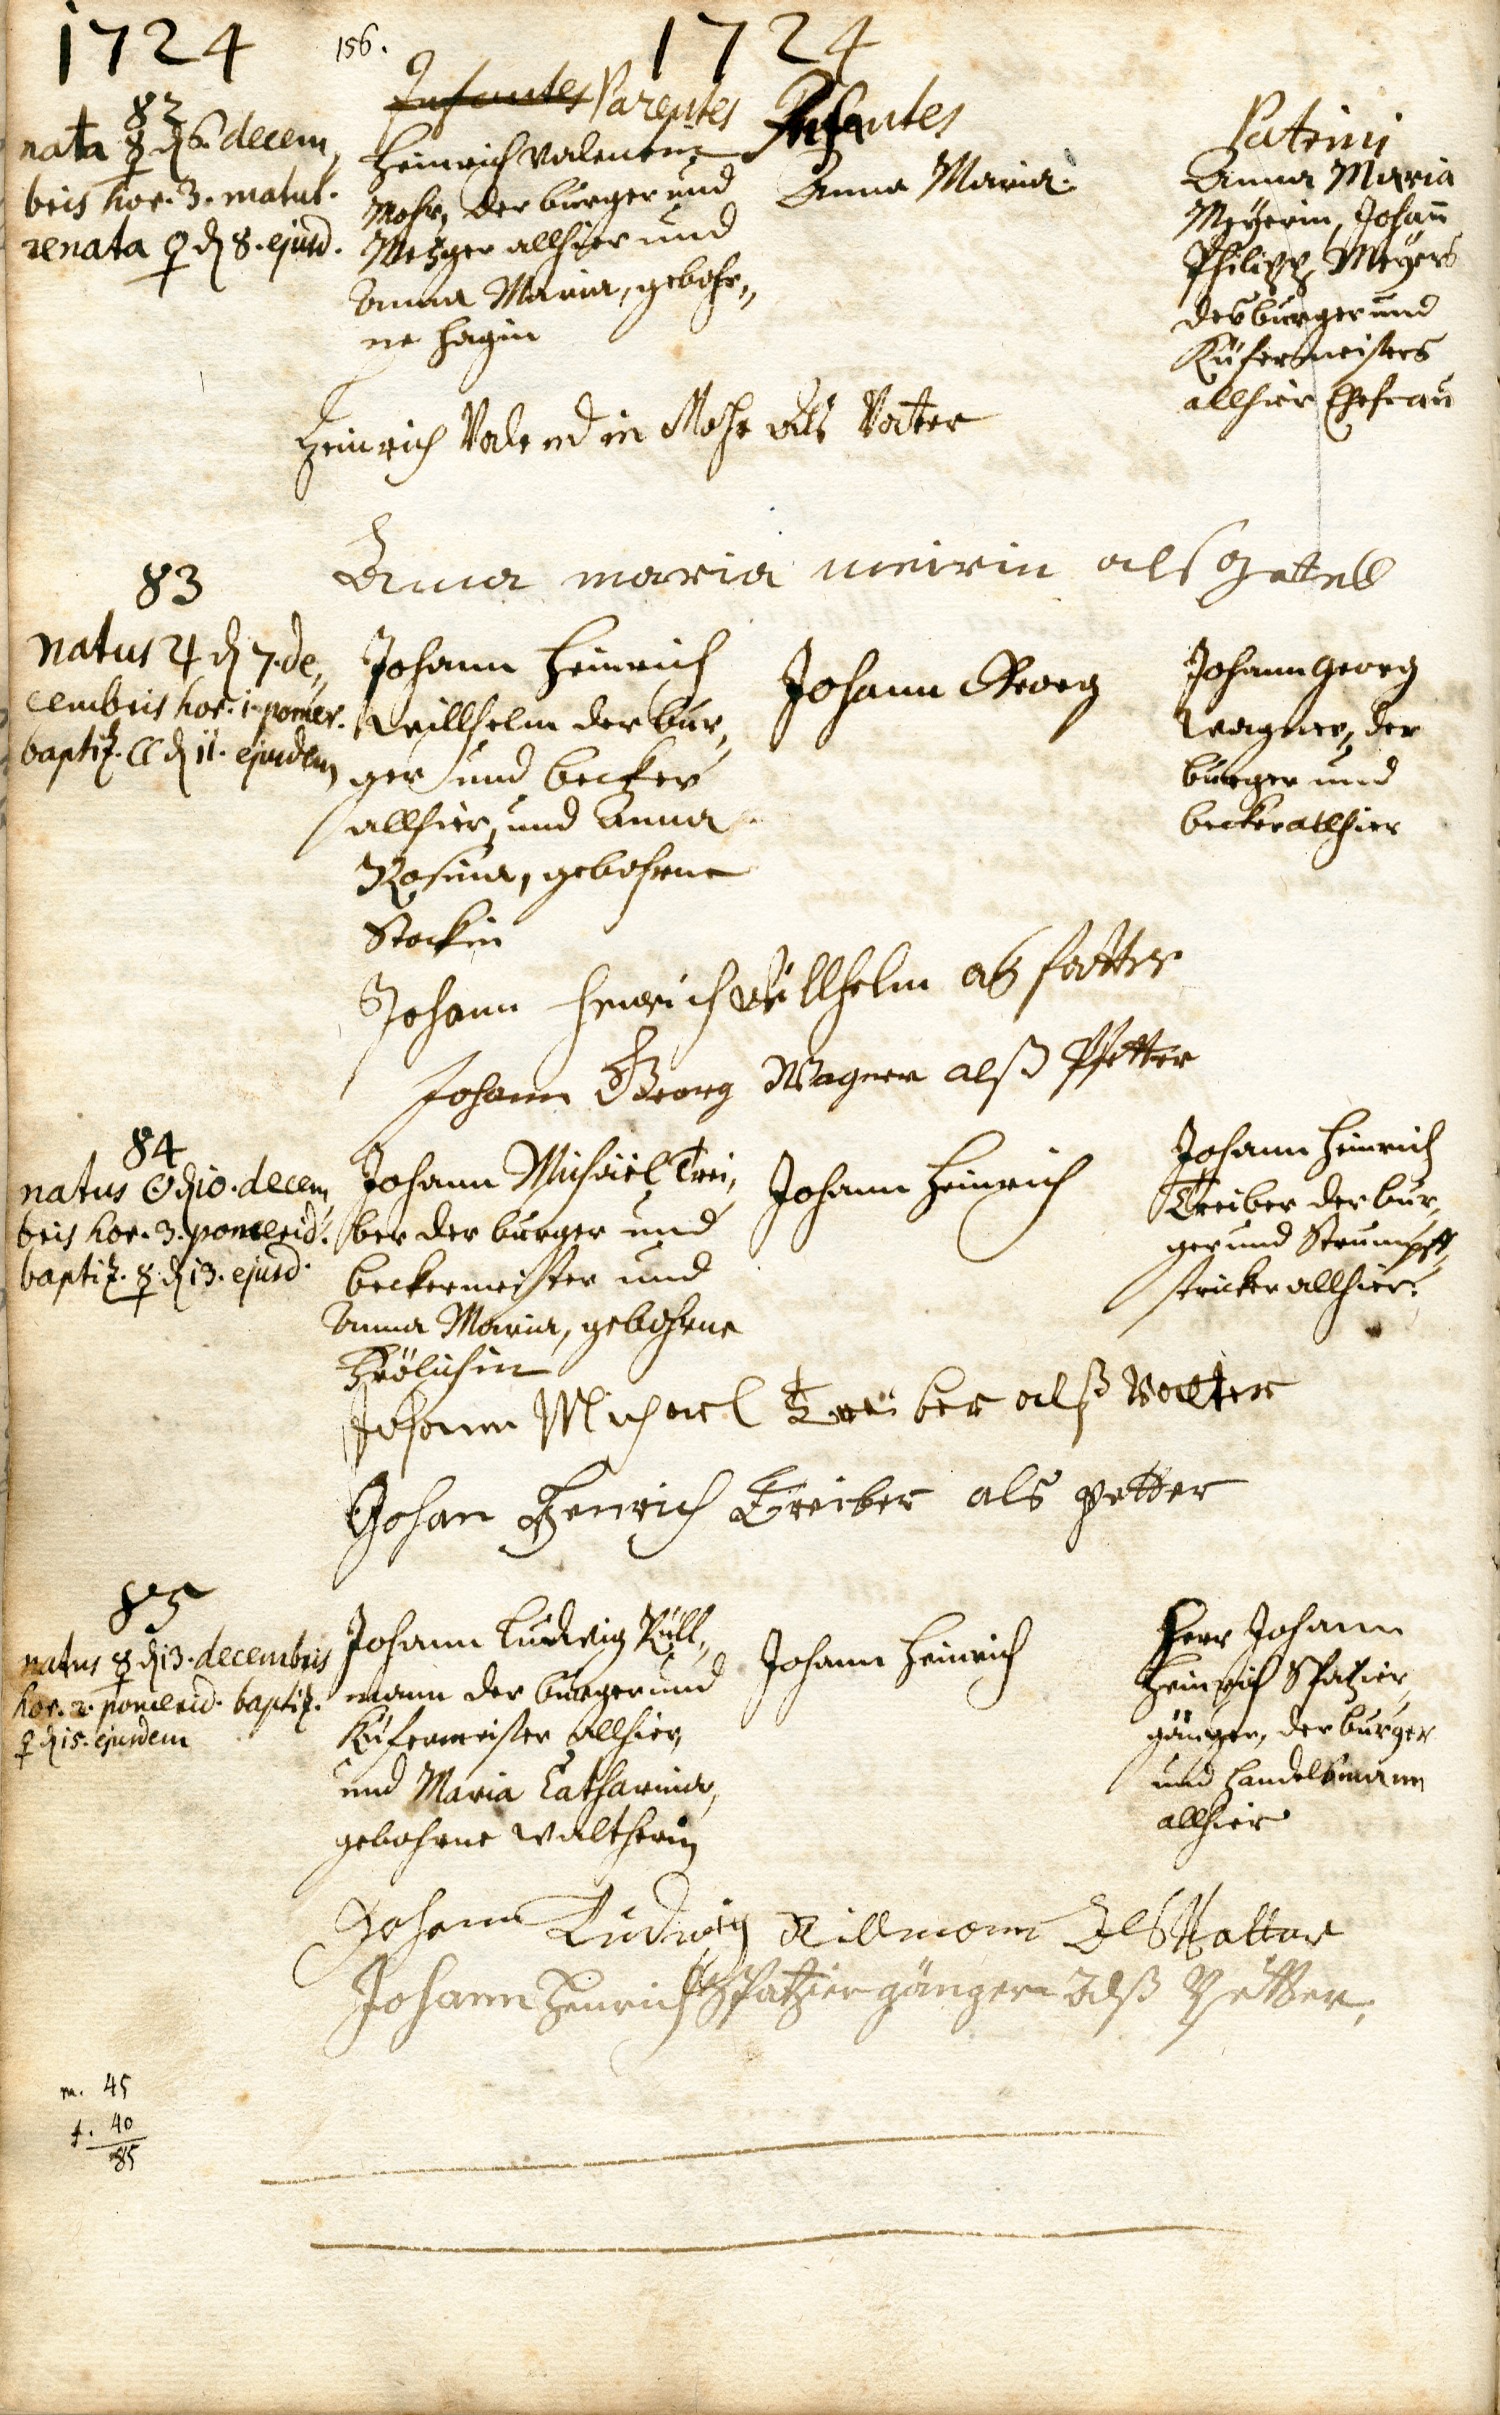 1724 156. 1724
Infantes Parentes Infantes Patrini
82
nata ☿ d 6. decem„
bris hor. 3. matut.
renata ♀ d 8. ejusd.
Heinrich Valentin
Mohr, der burger und
Metzger allhier und
Anna Maria, gebohr„
ne Hagin
Anna Maria
Anna Maria
Meÿerin, Johañ
Philipp Meÿers
des burger und
Küfermeisters
allhier Ehefrau
Heinrich Valendin Mohr als Vater
Anna maria meirin als gettel
83
natus ♃ d 7. de„
cembris hor. 1. pomer.
baptiz. ☾ d 11. ejusdem
Johann Heinrich
Willhelm der bur„
ger und becker
allhier, und Anna
Rosina, gebohrne
Stockin
Johann Georg
Johann Georg
Wagner, der
burger und
becker allhier
Johann Henrich Willhelm als fatter
Johann Georg Wagner alß Pfetter
84
natus ☉ d 10. decem„
bris hor. 3. pomerid.
baptiz. ☿ d 13. ejusd.
Johann Michäel Trei„
ber der burger und
beckermeister und
Anna Maria, gebohrne
Frölichin
Johann Heinrich
Johann Heinrich
Treiber der bur„
ger und Strumpff„
stricker allhier.
Johann Michael Treiber alß Vatter
Johan Henrich Treiber als Petter
85
natus ☿ d 13. decembris
hor. 2. pomerid. baptiz.
♀ d 15. ejusdem
Johann Ludwig Rüll„
mann der burger und
Küfermeister allhier,
und Maria Catharina,
gebohrne Waltherin
Johann Heinrich
Herr Johann
Heinrich Spatzier„
gänger, der burger
und Handelsmann
allhier
Johann Ludwig Rillmann Als Vatter
Johann Henrich Spatziergänger Alß Petter.
m. 45
f. 40
85